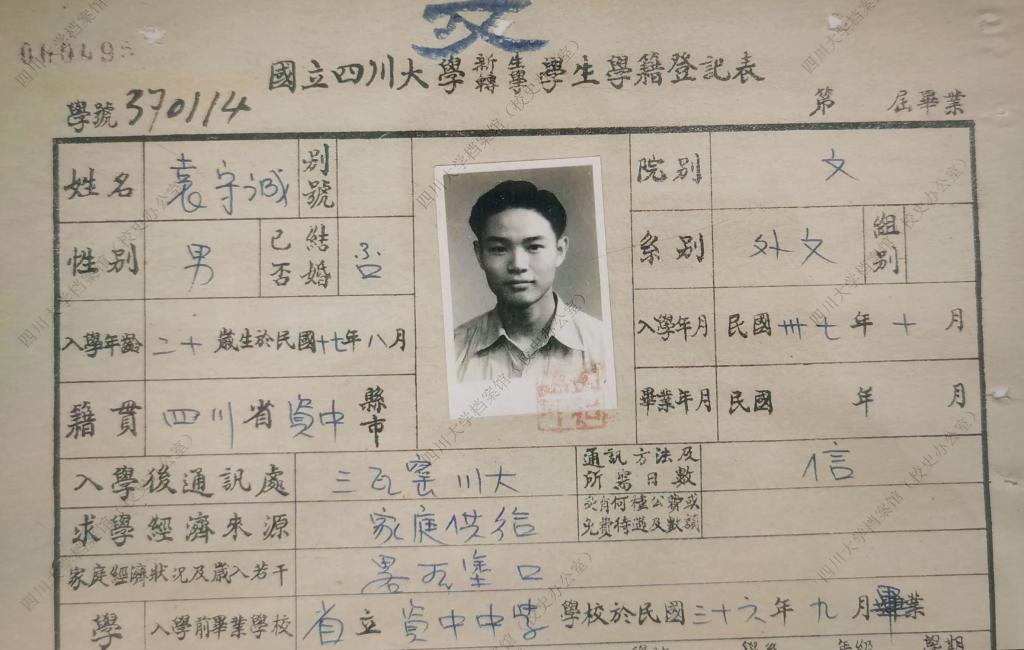 文
060498
國立四川大學新轉生學學生學籍登記表
學號370114
第 屆畢業
姓名 袁守誠 別號
院別 文
性別 男 已否結婚 否
系別 外文 組別
入學年齡 二十歲生於民國十七年八月
入學年月 民國卅七年十月
籍貫 四川省資中縣市
畢業年月 民國 年 月
入學後通訊處 三瓦窰川大
通訊方法及所需日數 信
求學經濟來源 家庭供給
受有何種公費或免費待遇及數額
家庭經濟狀況及歲入若干
學 入學前畢業學校 省立資中中学 學校於民國三十六年九月畢業
四川大学档案馆（校史办公室）